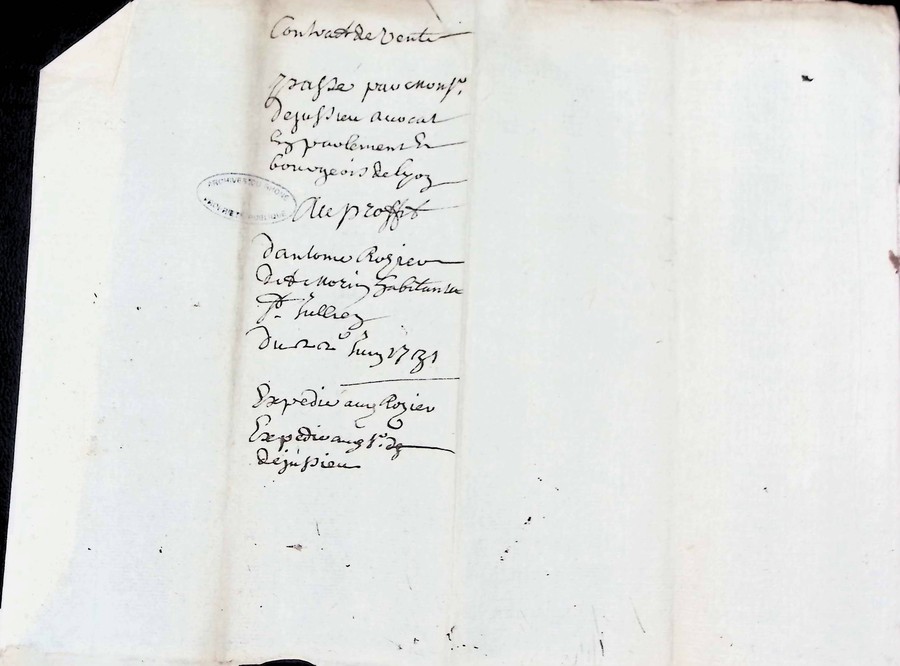 Contract de Vente
passe par Monsr.
dejussieu avocat
En parlement Et
bourgeois de lyon
Au proffit
dantoine Rozier
dit Morin habitant a
St. Jullien
du 22e Juin 1731
Expedie aud Rozier
Expedie aud sr. de
dejussieu